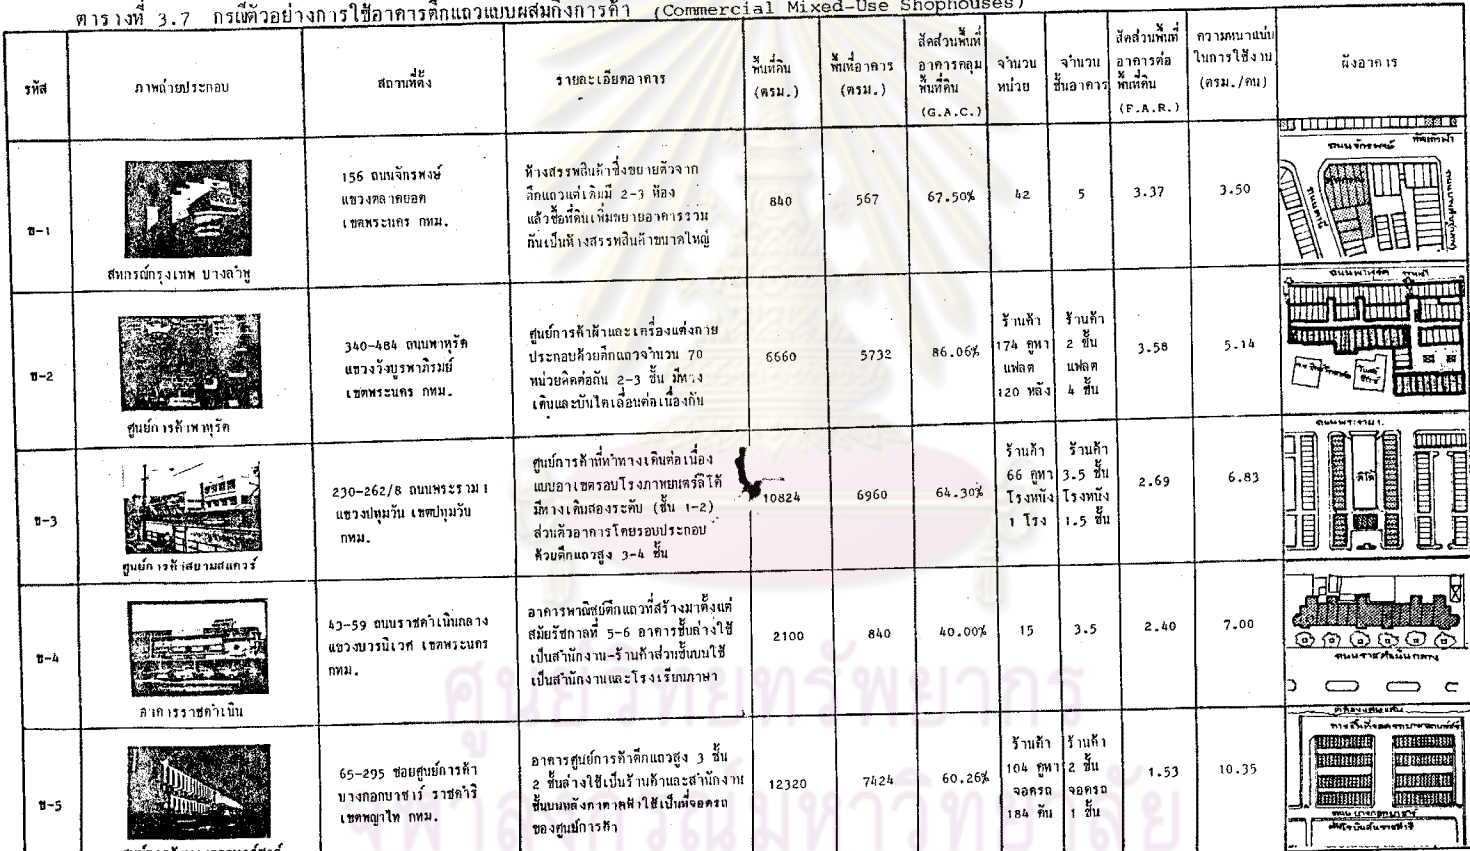 ตารางที่ 3.7 กรณีตัวอย่างการใช้อาคารตึกแถวแบบผสมกึ่งการค้า (Commercial Mixed-Use Shophouses)
รหัส
ภาพถ่ายประกอบ
สถานที่ตั้ง
รายละเอียดอาคาร
พื้นที่ดิน
(ตรม.)
พื้นที่อาคาร
(ตรม.)
สัดส่วนพื้นที่
อาคารคลุม
พื้นที่ดิน
(G.A.C.)
จำนวน
หน่วย
จำนวน
ชั้นอาคาร
สัดส่วนพื้นที่
อาคารต่อ
พื้นที่ดิน
(F.A.R.)
ความหนาแน่น
ในการใช้งาน
(ตรม./คน)
ผังอาคาร
ข-1
สหกรณ์กรุงเทพ บางลำพู
156 ถนนจักรพงษ์
แขวงตลาดยอด
เขตพระนคร กทม.
ห้างสรรพสินค้าซึ่งขยายตัวจาก
ตึกแถวแต่เดิมมี 2-3 ห้อง
แล้วซื้อที่ดินเพิ่มขยายอาคารรวม
กันเป็นห้างสรรพสินค้าขนาดใหญ่
840
567
67.50%
42
5
3.37
3.50
ถนนจักรพงษ์
ข-2
ศูนย์การค้าพาหุรัด
340-484 ถนนพาหุรัด
แขวงวังบูรพาภิรมย์
เขตพระนคร กทม.
ศูนย์การค้าผ้าและเครื่องแต่งกาย
ประกอบด้วยตึกแถวจำนวน 70
หน่วยติดต่อกัน 2-3 ชั้น มีทาง
เดินและบันไดเลื่อนต่อเนื่องกัน
6660
5732
86.06%
ร้านค้า
174 คูหา
แฟลต
120 หลัง
ร้านค้า
2 ชั้น
แฟลต
4 ชั้น
3.58
5.14
ถนนพาหุรัด
ข-3
ศูนย์การค้าสยามสแควร์
230-262/8 ถนนพระราม 1
แขวงปทุมวัน เขตปทุมวัน
กทม.
ศูนย์การค้าที่ทำทางเดินต่อเนื่อง
แบบอาเขตรอบโรงภาพยนตร์ลิโด้
มีทางเดินสองระดับ (ชั้น 1-2)
ส่วนตัวอาคารโดยรอบประกอบ
ด้วยตึกแถวสูง 3-4 ชั้น
10824
6960
64.30%
ร้านค้า
66 คูหา
โรงหนัง
1 โรง
ร้านค้า
3.5 ชั้น
โรงหนัง
1.5 ชั้น
2.69
6.83
ถนนพระราม 1.
ลิโด้
ข-4
อาคารราชดำเนิน
43-59 ถนนราชดำเนินกลาง
แขวงบวรนิเวศ เขตพระนคร
กทม.
อาคารพาณิชย์ตึกแถวที่สร้างมาตั้งแต่
สมัยรัชกาลที่ 5-6 อาคารชั้นล่างใช้
เป็นสำนักงาน-ร้านค้าส่วนชั้นบนใช้
เป็นสำนักงานและโรงเรียนภาษา
2100
840
40.00%
15
3.5
2.40
7.00
ถนนราชดำเนินกลาง
ข-5
65-295 ซอยศูนย์การค้า
บางกอกบาซาร์ ราชดำริ
เขตพญาไท กทม.
อาคารศูนย์การค้าตึกแถวสูง 3 ชั้น
2 ชั้นล่างใช้เป็นร้านค้าและสำนักงาน
ชั้นบนหลังคาดาดฟ้าใช้เป็นที่จอดรถ
ของศูนย์การค้า
12320
7424
60.26%
ร้านค้า
104 คูหา
จอดรถ
184 คัน
ร้านค้า
2 ชั้น
จอดรถ
1 ชั้น
1.53
10.35
ศูนย์วิทยทรัพยากร
จุฬาลงกรณ์มหาวิทยาลัย